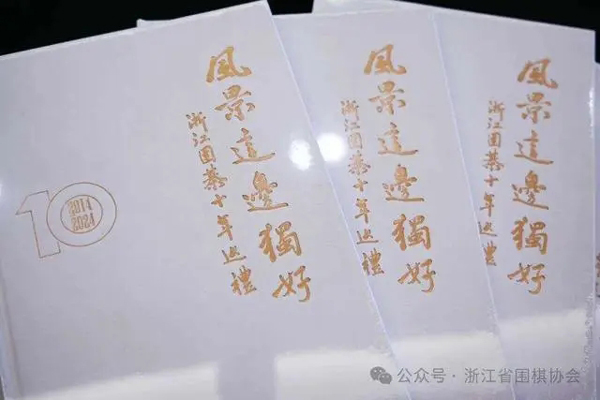 風景這邊獨好
浙江围棊十年巡禮
10
2014
2024
風景這邊獨好
浙江围棊十年巡禮
風景這邊獨好
浙江围棊十年巡禮
公众号·浙江省围棋协会